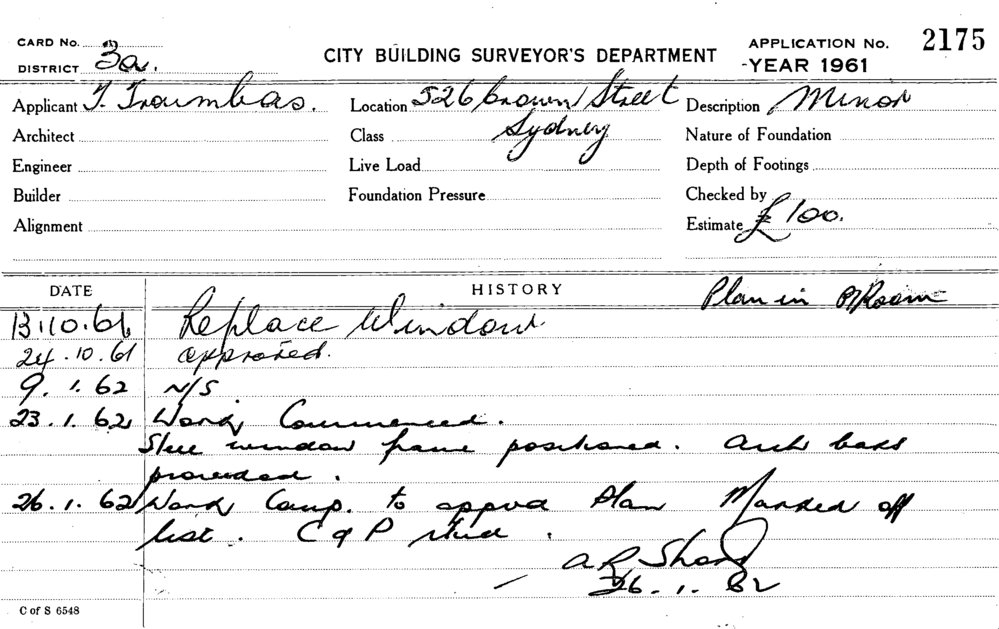 CARD No. 3a.
DISTRICT
CITY BUILDING SURVEYOR'S DEPARTMENT
APPLICATION No. 2175
-YEAR 1961
Applicant T. Troumbas. Location 526 Crown Street Description Minor
Architect Class Sydney Nature of Foundation
Engineer Live Load Depth of Footings
Builder Foundation Pressure Checked by
Alignment Estimate £100.
DATE HISTORY Plan in P/Room
13.10.61 Replace Window
24.10.61 approved.
9.1.62 N/S.
23.1.62 Work Commenced.
window frame positioned. Arch bars
provided.
26.1.62 Work Comp. to appvd Plan Marked off
list. C & P
26.1.62
C of S 6548